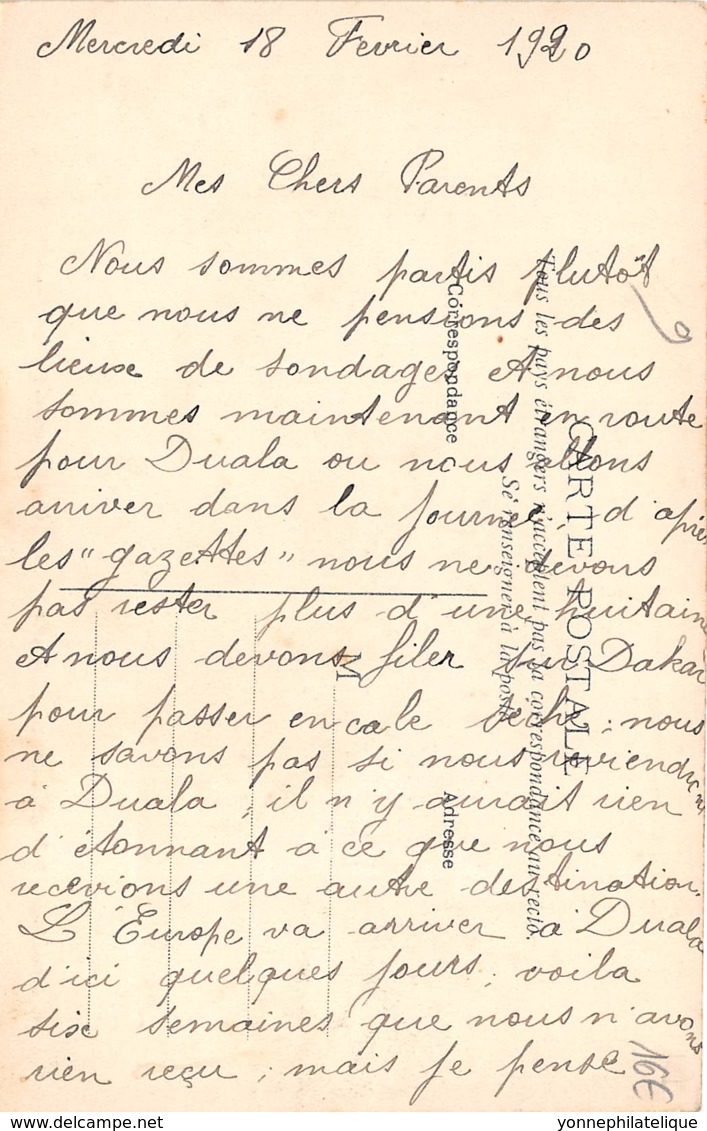 Mercredi 18 Fevrier 1920
Mes Chers Parents
Nous sommes partis plutôt
que nous ne pensions des
lieux de sondages A nous
sommes maintenant en route
pour Duala ou nous allons
arriver dans la journée, d'après
les "gazettes" nous ne devons
pas rester plus d'une huitaine
A nous devons filer sur Dakar
pour passer en cale sèche ; nous
ne savons pas si nous reviendrons
à Duala ; il n'y aurait rien
d'étonnant à ce que nous
recevions une autre destination.
L'Europe va arriver à Duala
d'ici quelques jours ; voila
six semaines que nous n'avons
rien reçu ; mais je pense
CARTE POSTALE
Tous les pays étrangers n'acceptent pas la correspondance au recto.
Se renseigner à la poste
Correspondance
Adresse
M
16€
yonnephilatelique